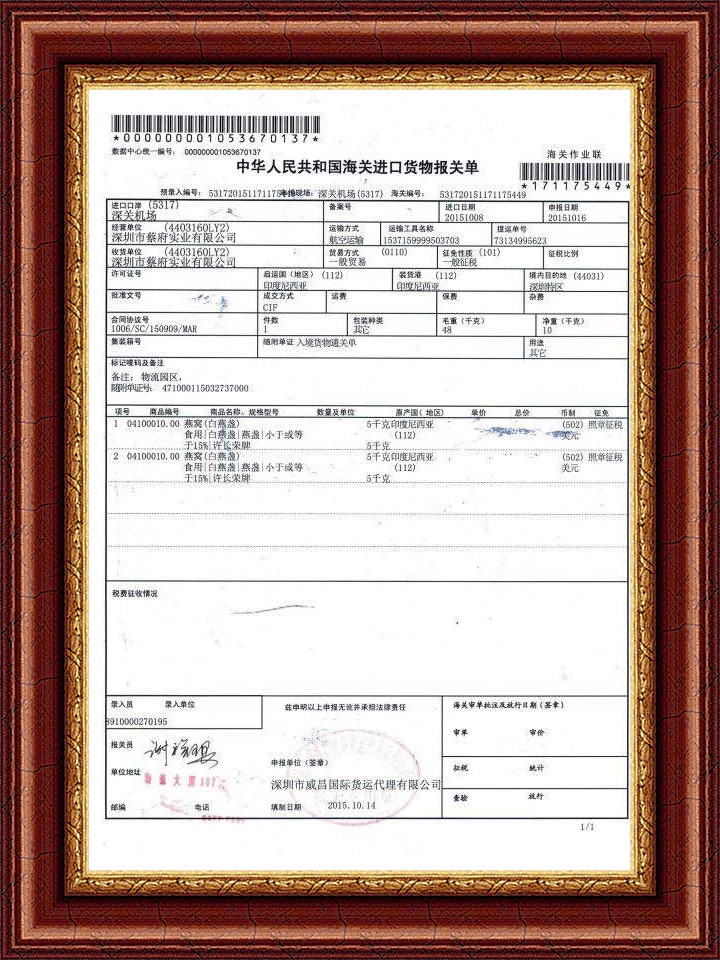 *000000001053670137*
数据中心统一编号: 000000001053670137
海关作业联
中华人民共和国海关进口货物报关单
*171175449*
预录入编号: 申报现场: 深关机场(5317) 海关编号: 531720151171175449
进口口岸 (5317) 备案号 进口日期 申报日期
深关机场 20151008 20151016
经营单位 (4403160LY2) 运输方式 运输工具名称 提运单号
深圳市蔡府实业有限公司 航空运输 1537159999503703 73134995623
收货单位 (4403160LY2) 贸易方式 (0110) 征免性质 (101) 征税比例
深圳市蔡府实业有限公司 一般贸易 一般征税
许可证号 启运国（地区） (112) 装货港 (112) 境内目的地 (44031)
印度尼西亚 印度尼西亚 深圳特区
批准文号 成交方式 运费 保费 杂费
CIF
合同协议号 件数 包装种类 毛重（千克） 净重（千克）
1006/SC/150909/MAR 1 其它 48 10
集装箱号 随附单证 入境货物通关单 用途
其它
标记唛码及备注
备注: 物流园区,
随附单证号: 471000115032737000
项号 商品编号 商品名称、规格型号 数量及单位 原产国（地区） 单价 总价 币制 征免
1 04100010.00 燕窝(白燕盏) 5千克 印度尼西亚 (502) 照章征税
食用|白燕盏|燕盏|小于或等 (112) 美元
于15%|许长荣牌 5千克
2 04100010.00 燕窝(白燕盏) 5千克 印度尼西亚 (502) 照章征税
食用|白燕盏|燕盏|小于或等 (112) 美元
于15%|许长荣牌 5千克
税费征收情况
录入员 录入单位 兹申明以上申报无讹并承担法律责任 海关审单批注及放行日期（签章）
8910000270195
审单 审价
报关员
申报单位（签章） 征税 统计
单位地址
深圳市威昌国际货运代理有限公司
查验 放行
邮编 电话 填制日期 2015.10.14
1/1